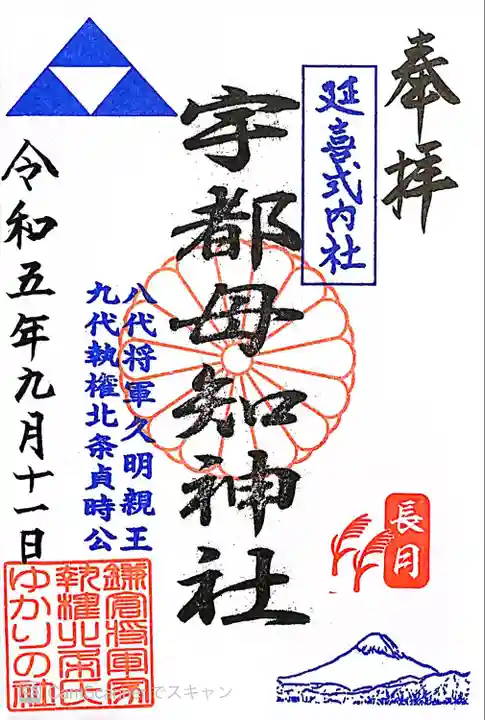 奉拝
延喜式内社
宇都母知神社
八代将軍久明親王
九代執権北条貞時公
令和五年九月十一日
長月
鎌倉将軍家
執権北条氏
ゆかりの社
CamScannerでスキャン